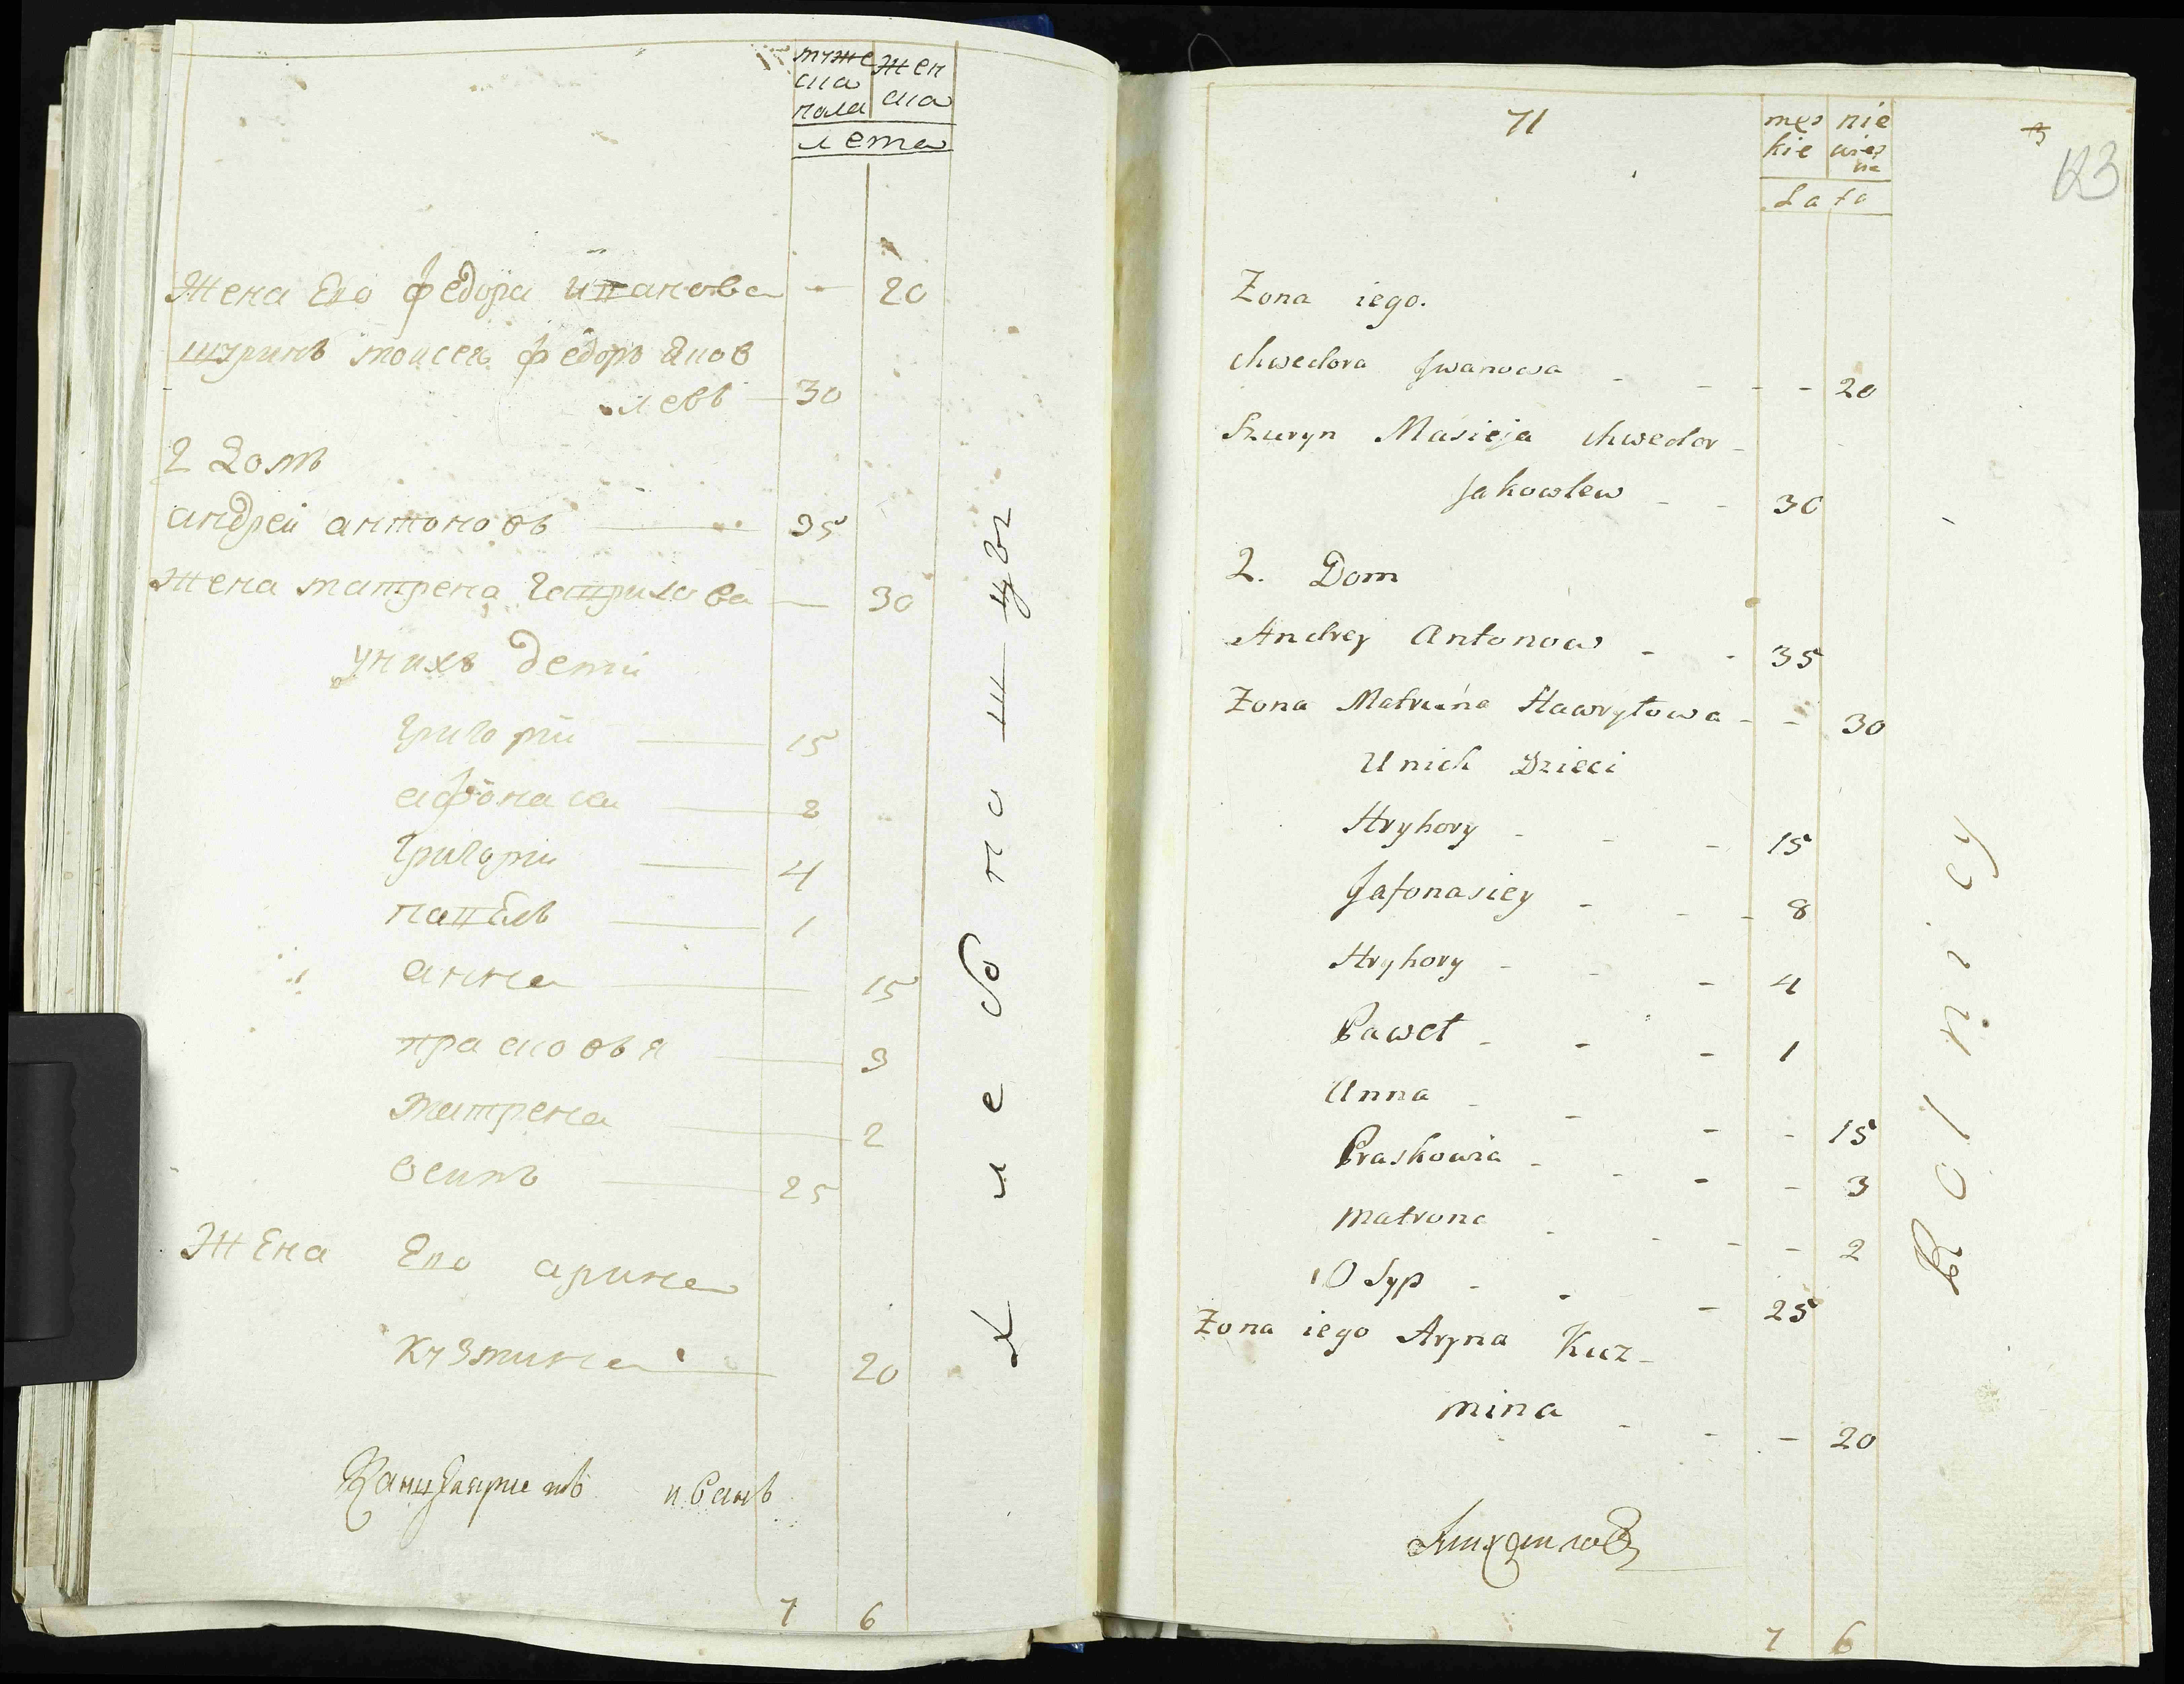 муже жен
ска ска
пола
лета
Жена Его федора ивановa 20
шуринъ моисея федоръ Яков
левъ 30
2 Домъ
андреи антоновъ 35
жена матрена гаврилова 30
унихъ дети
григории 15
афонаси 8
григории 4
павелъ 1
анна 15
прасковья 3
матрена 2
осипъ 25
Жена Его арина
кузмина 20
Канцеляристъ иванъ
7 6
Хлебопашцы
71
męs nie
kie wieś
cie
Lata
123
Zona iego.
Chwedora Jwanowa 20
Szuryn Masieja Chwedor
Jakowlew 30
2. Dom
Andrey Antonow 35
Zona Matruna Hawryłowa 30
Unich Dzieci
Hryhory 15
Jafonasiey 8
Hryhory 4
Paweł 1
Anna 15
Praskowia 3
Matrona 2
Osyp 25
Zona iego Aryna Kuz-
mina 20
Михаиловъ
7 6
Rolnicy